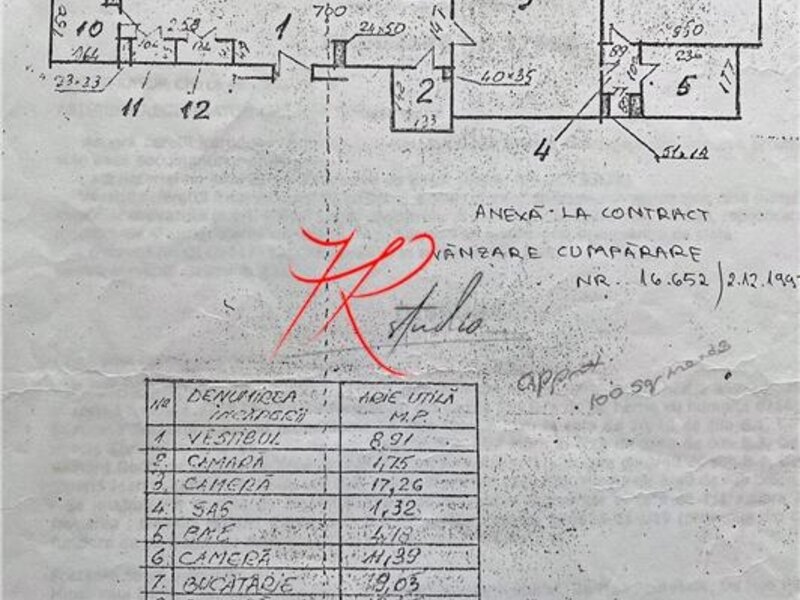 700
10
258
1
24×50
147
950
164
104
124
89
236
177
5
23×33
2
40×35
11
12
133
4
51×19
ANEXĂ LA CONTRACT
VÂNZARE CUMPĂRARE
NR. 16.652/2.12.199
KR
studio
approx
100 sq meds
No DENUMIREA ÎNCĂPERII ARIE UTILĂ M.P.
1 VESTIBUL 8,91
2. CĂMARĂ 1,75
3. CAMERĂ 17,26
4. SAS 1,32
5 BAE 4,18
6 CAMERĂ 11,99
7. BUCĂTĂRIE 9,03